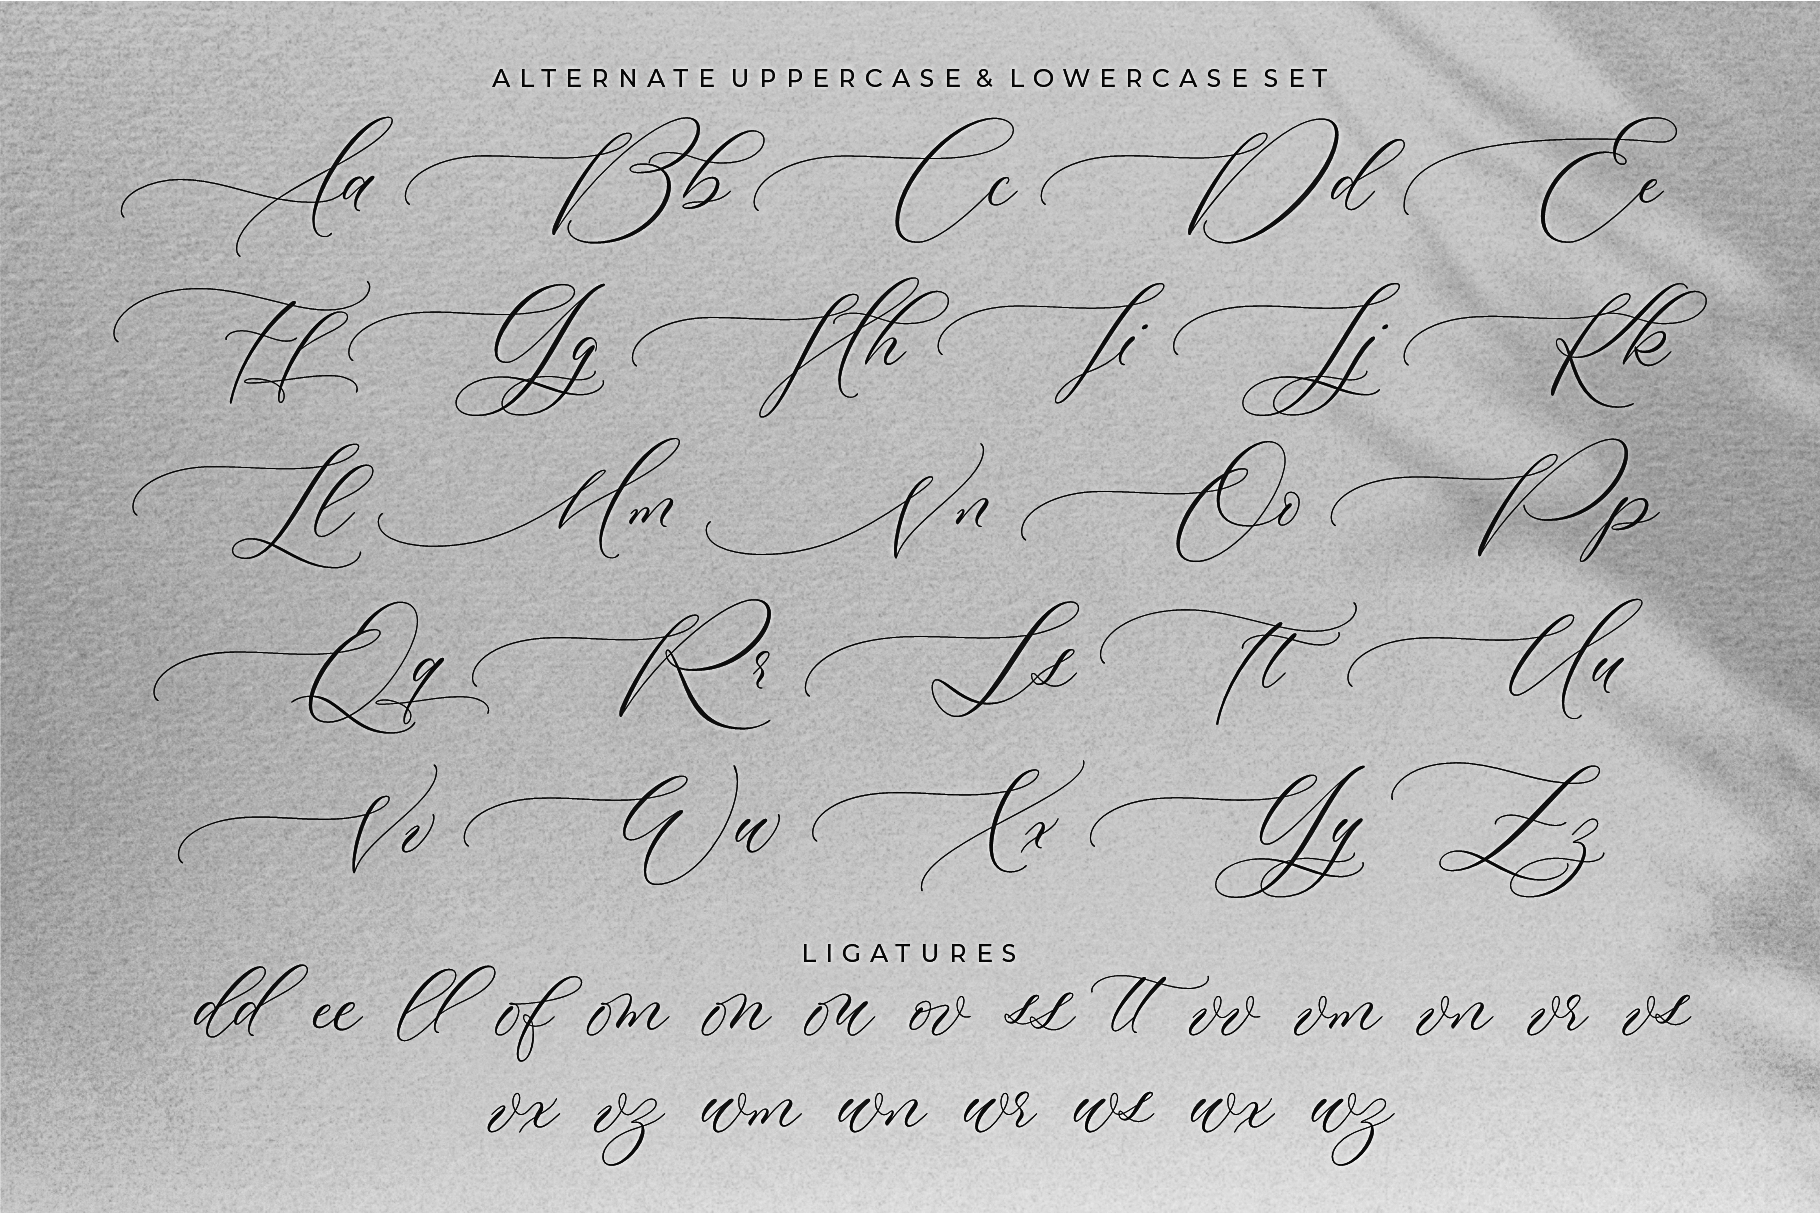 ALTERNATE UPPERCASE & LOWERCASE SET
Aa Bb Cc Dd Ee
Ff Gg Hh Ii Jj Kk
Ll Mm Nn Oo Pp
Qq Rr Ss Tt Uu
Vv Ww Xx Yy Zz
LIGATURES
dd ee ll of om on ou ov ss tt vv vm vn vr vs
vx vz wm wn wr ws wx wz